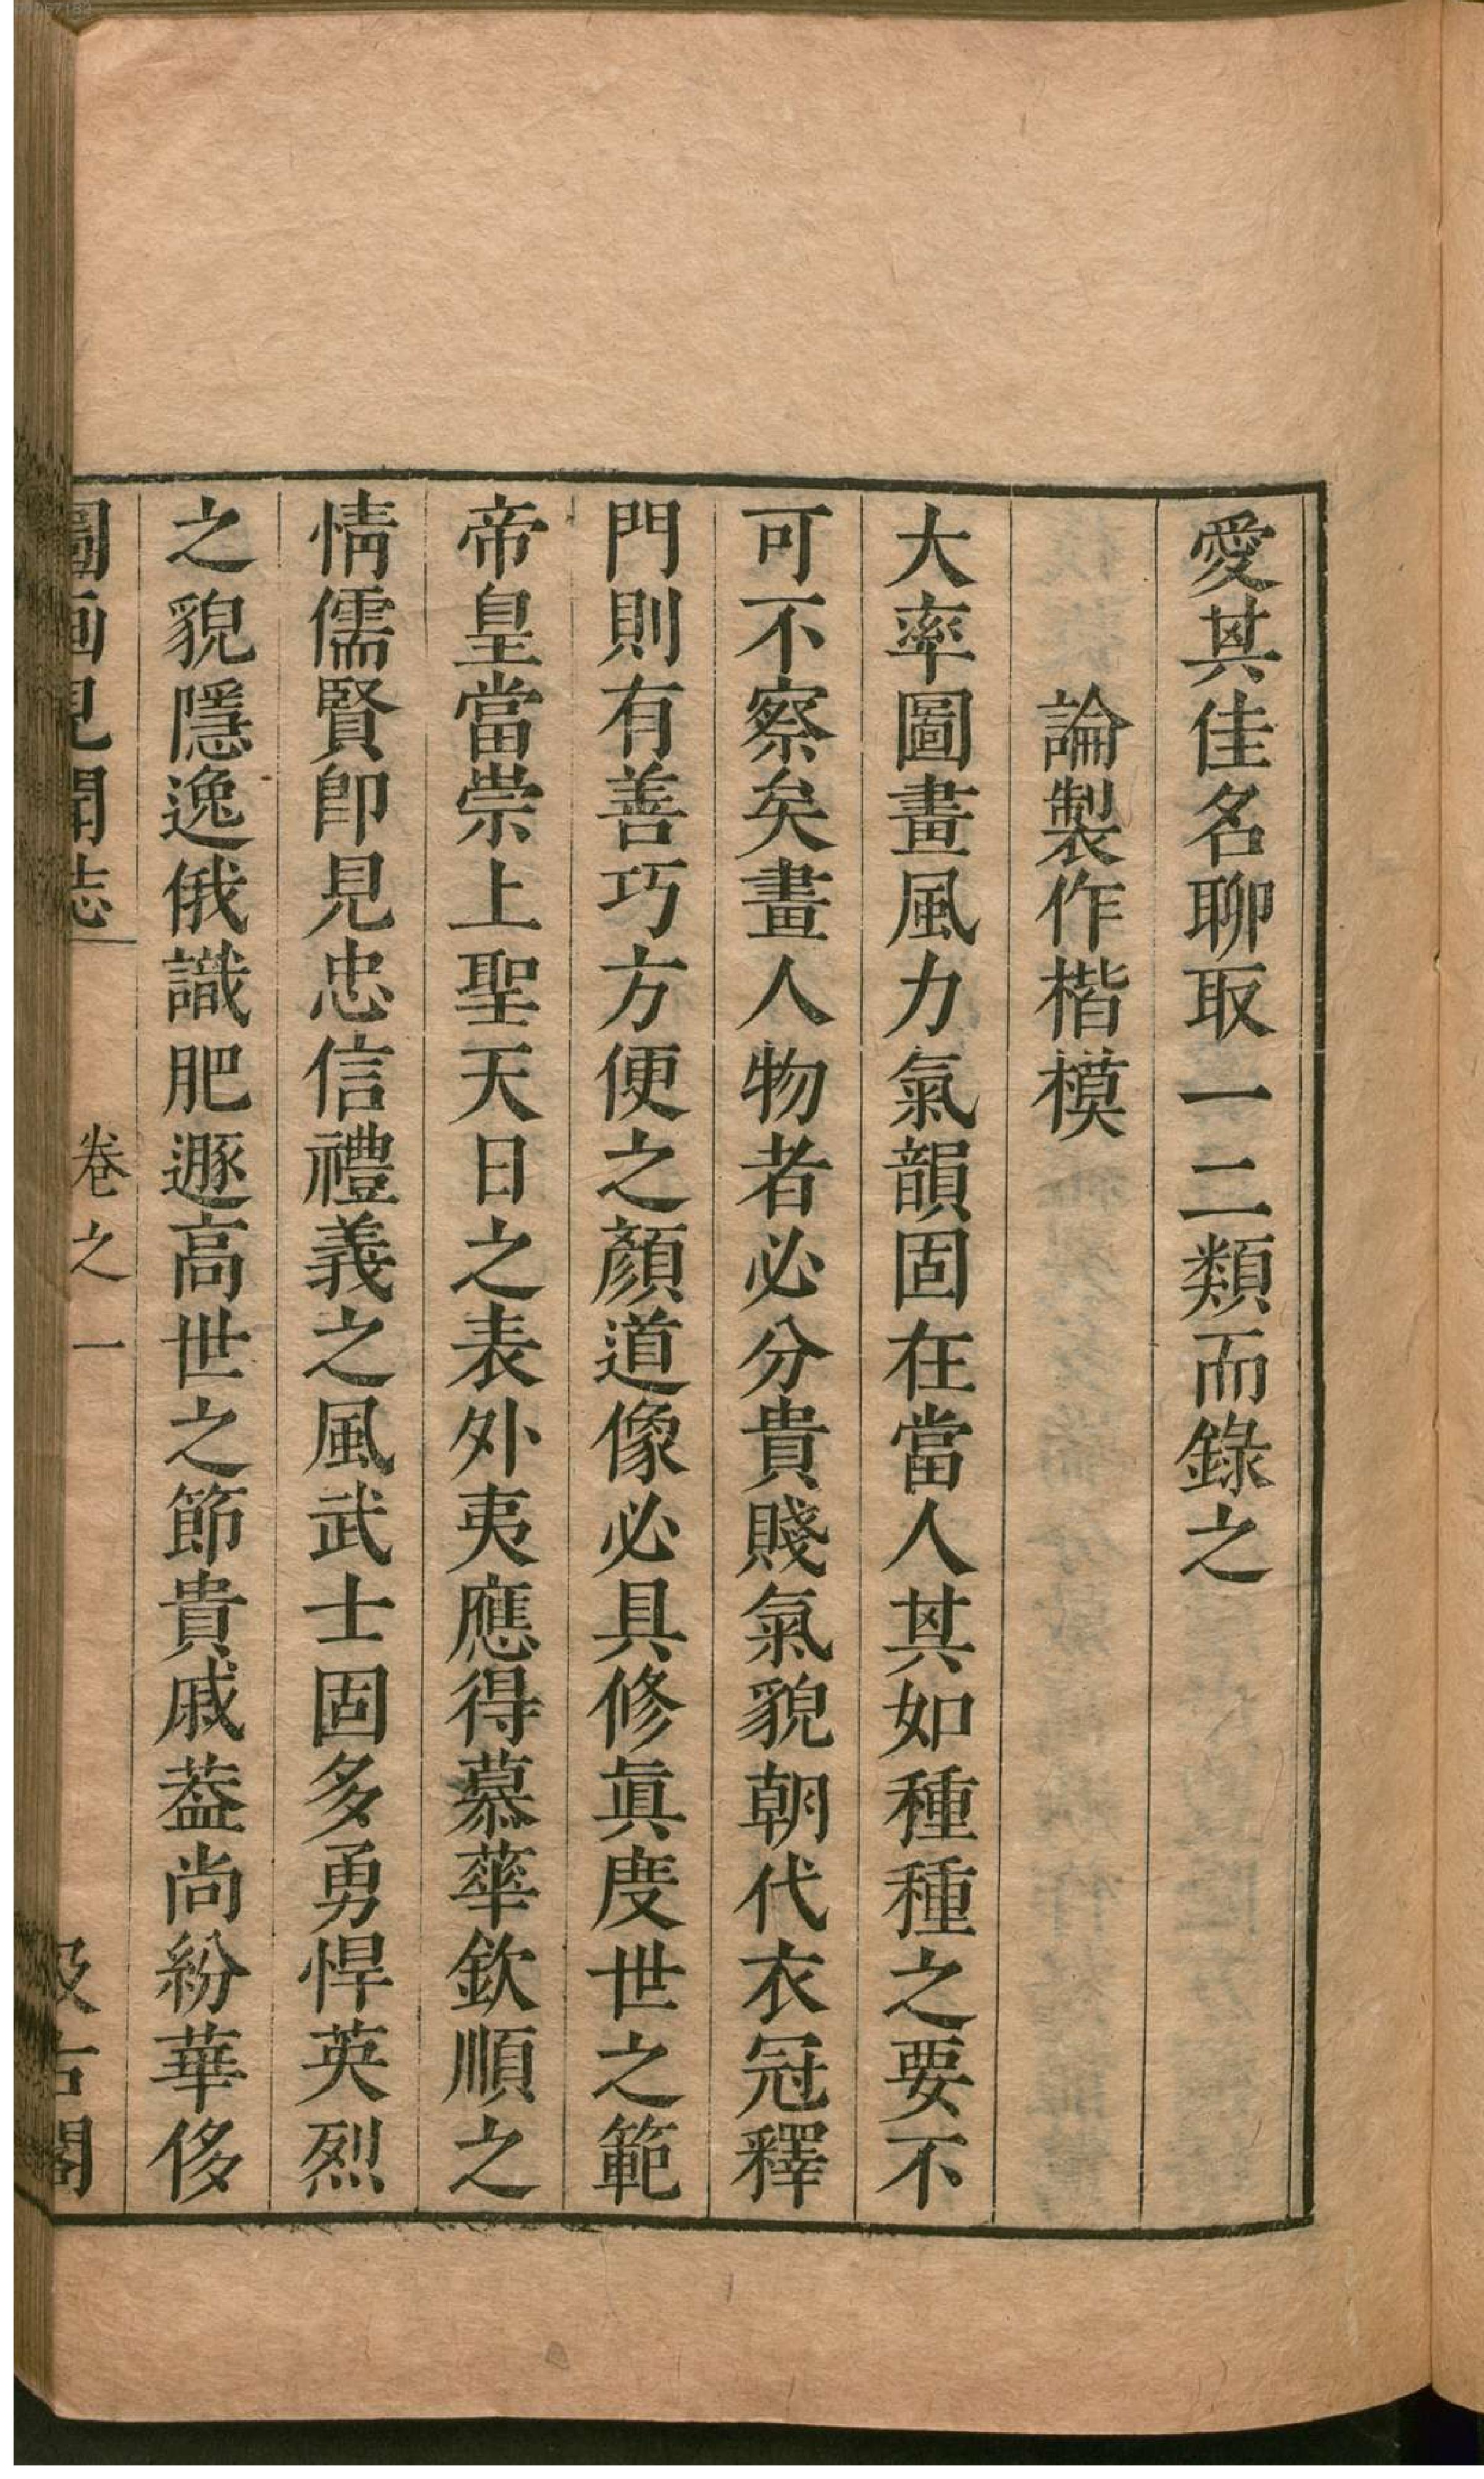 愛其佳名聊取一二類而錄之
論製作楷模
大率圖畫風力氣韻固在當人其如種種之要不
可不察矣畫人物者必分貴賤氣貌朝代衣冠釋
門則有善巧方便之顏道像必具修眞度世之範
帝皇當崇上聖天日之表外夷應得慕華欽順之
情儒賢卽見忠信禮義之風武士固多勇悍英烈
之貌隱逸俄識肥遯高世之節貴戚葢尚紛華侈
圖画見聞志 卷之一 汲古閣